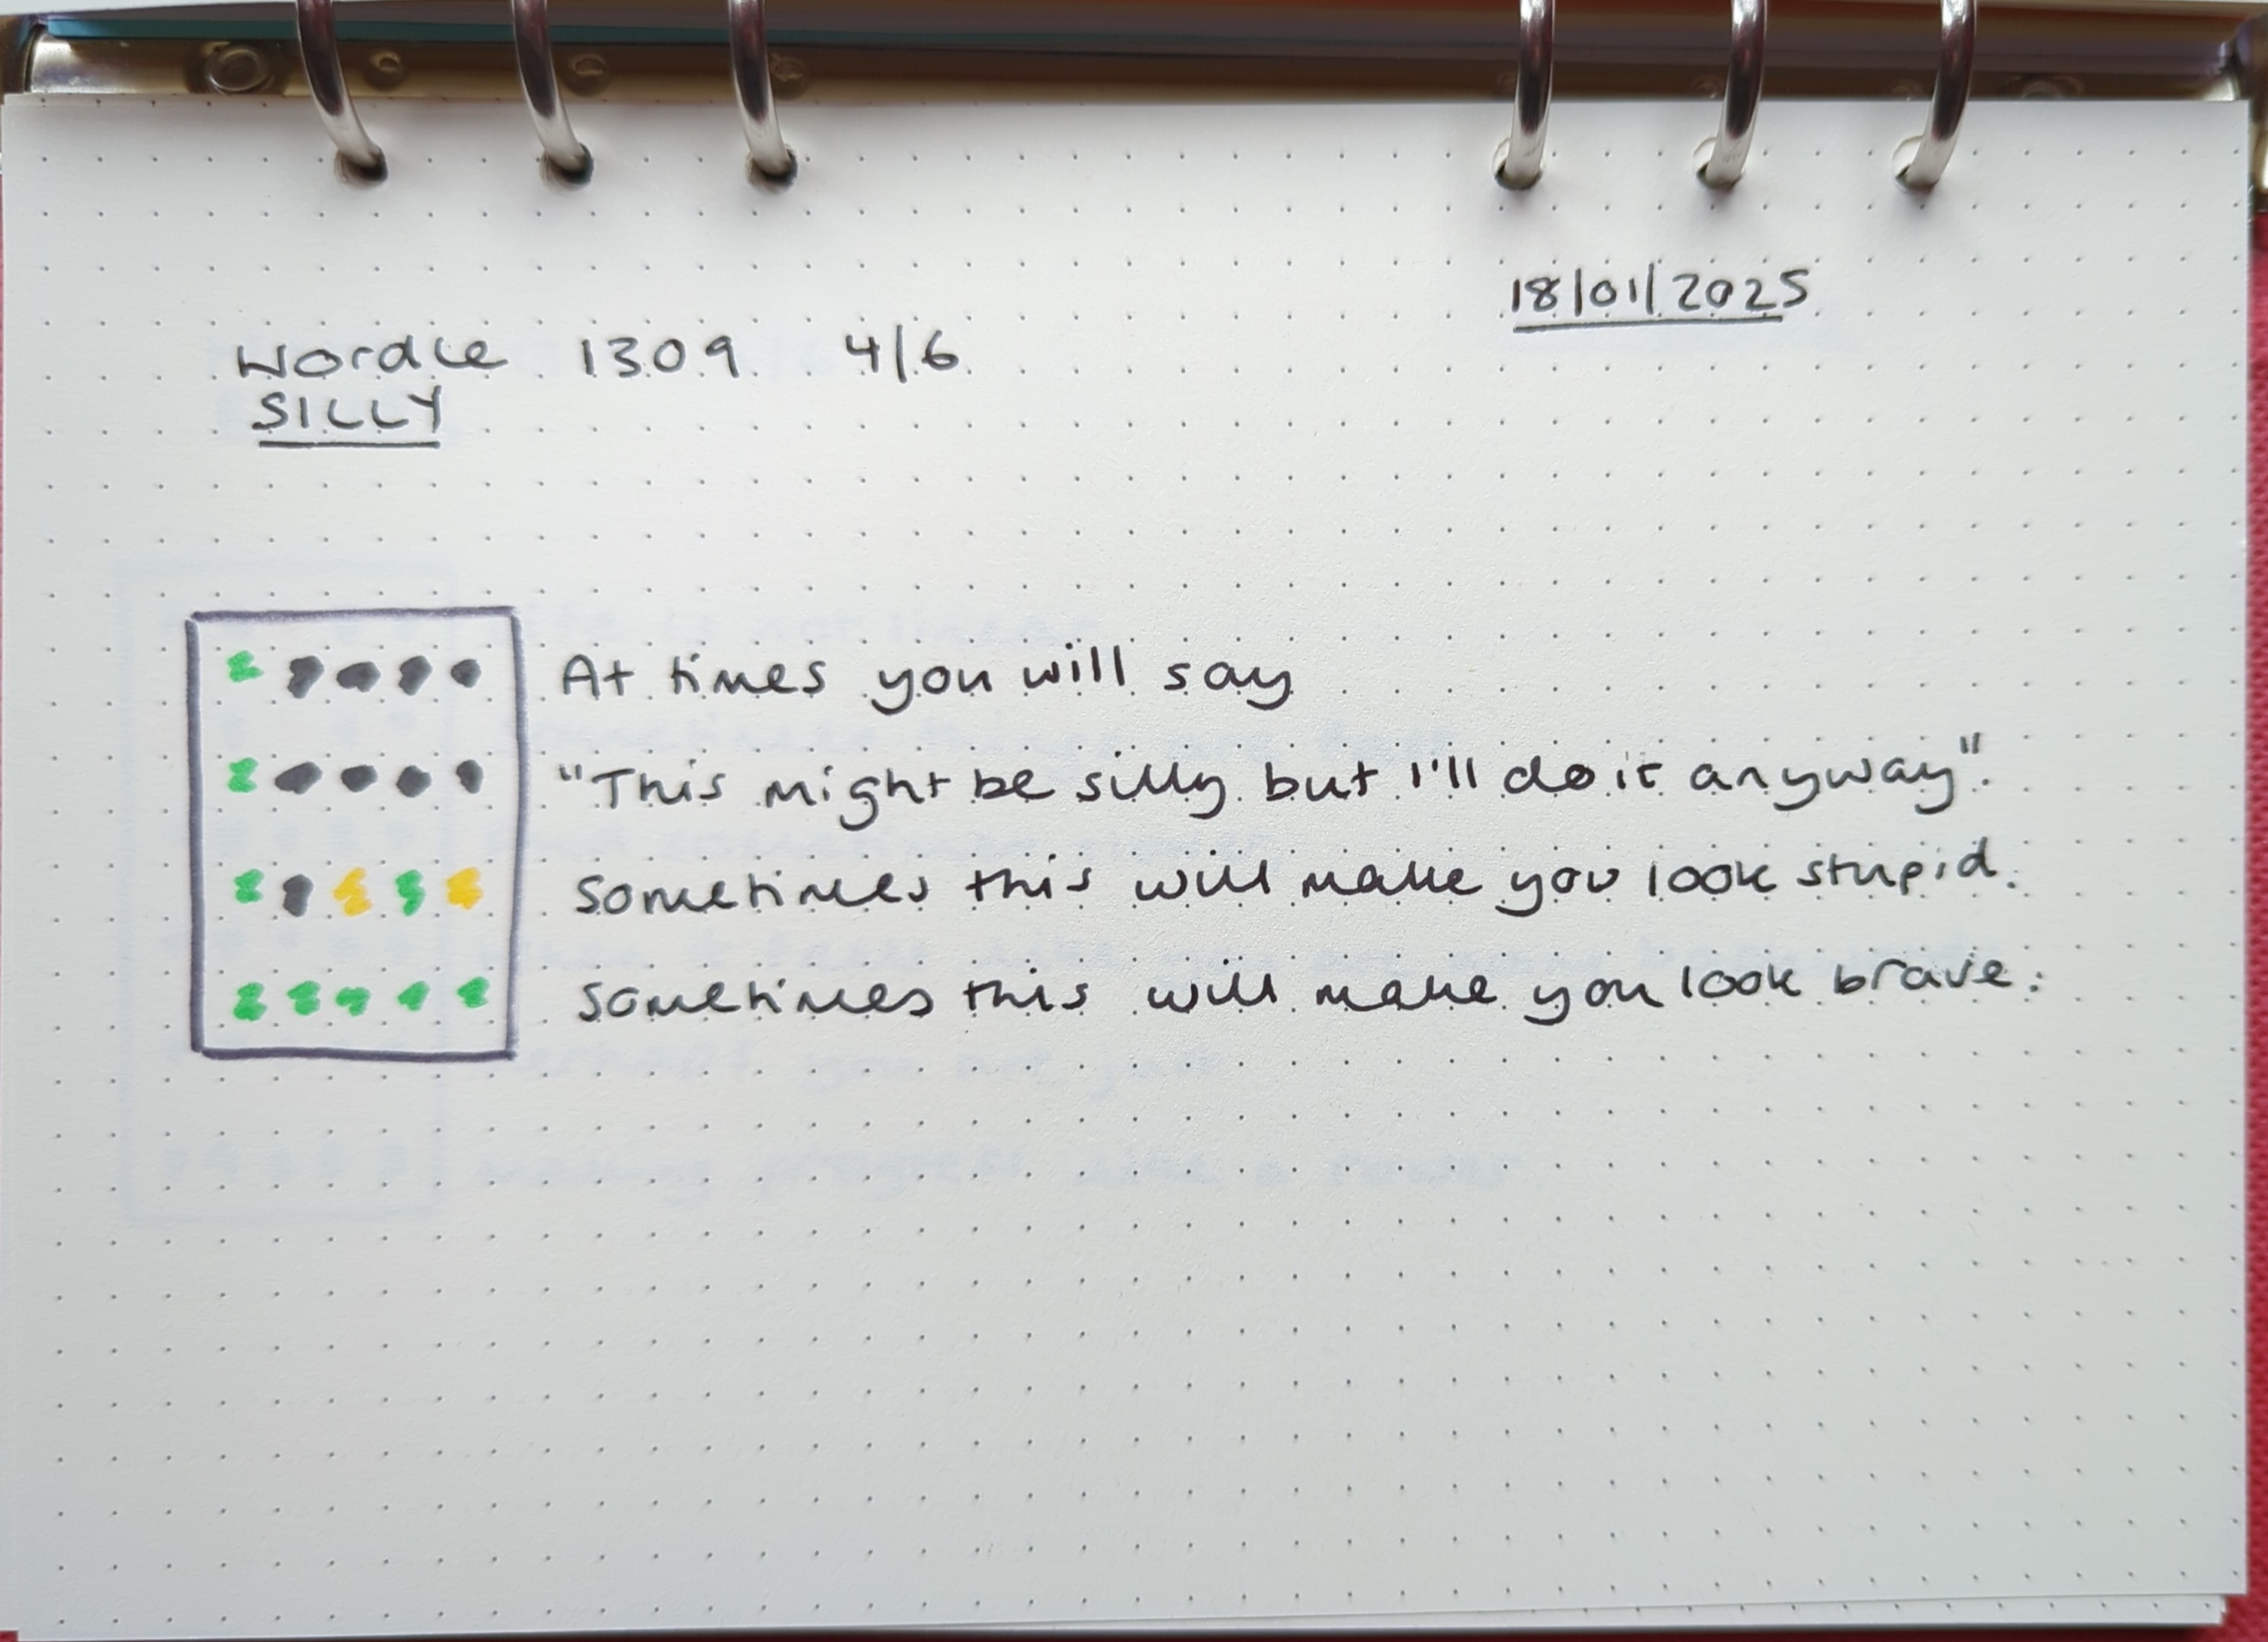 18/01/2025
Wordle 1309 4/6
SILLY
At times you will say
"This might be silly but I'll do it anyway".
Sometimes this will make you look stupid.
Sometimes this will make you look brave.